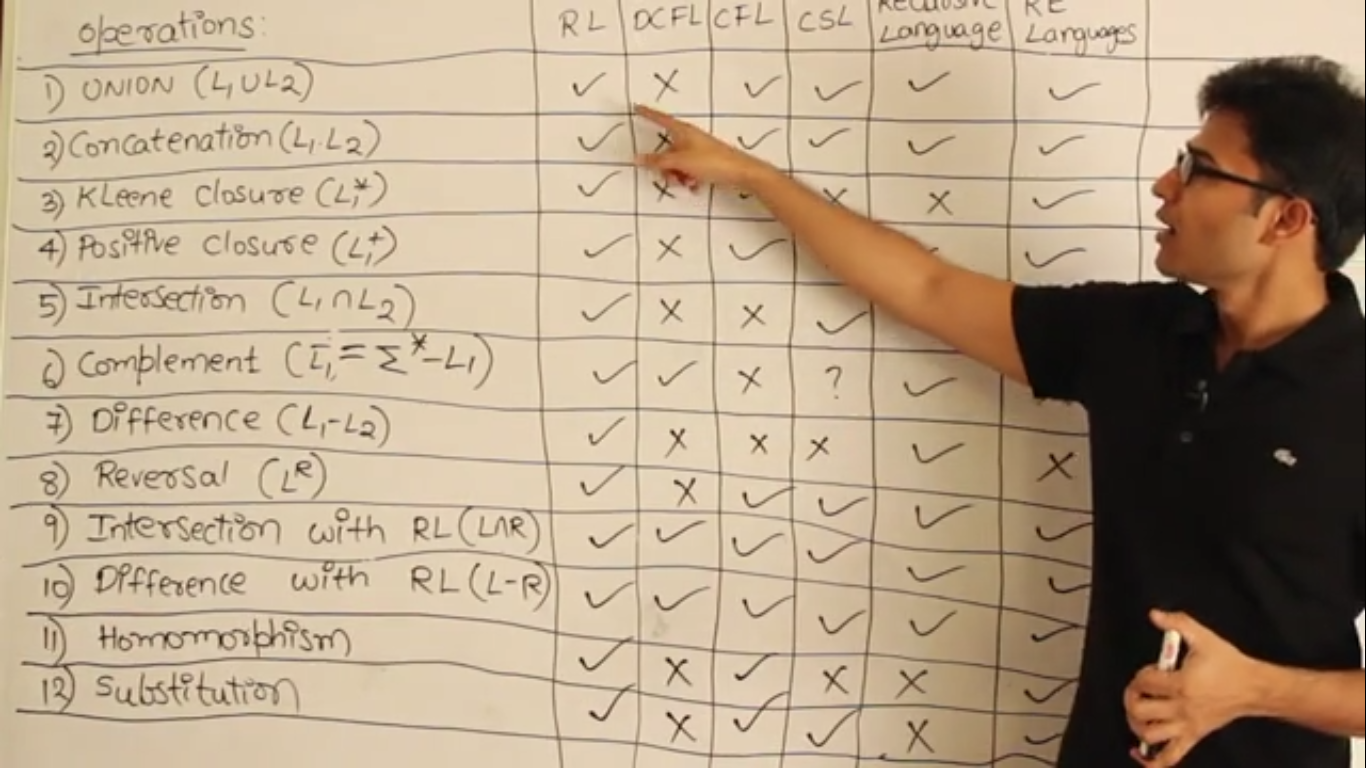 operations: RL DCFL CFL CSL Recursive Language RE Languages
1) UNION (L₁UL2) ✓ × ✓ ✓ ✓ ✓
2) Concatenation (L₁.L2) ✓ × ✓ ✓ ✓ ✓
3) Kleene closure (L₁*) ✓ × ✓ × × ✓
4) Positive closure (L₁⁺) ✓ × ✓ ✓
5) Intersection (L₁∩L2) ✓ × × ✓
6) Complement (L̅₁ = Σ*-L₁) ✓ ✓ × ? ✓
7) Difference (L₁-L2) ✓ × × × ✓ ×
8) Reversal (Lᴿ) ✓ × ✓ ✓ ✓ ✓
9) Intersection with RL (L∩R) ✓ ✓ ✓ ✓ ✓ ✓
10) Difference with RL (L-R) ✓ ✓ ✓ ✓ ✓ ✓
11) Homomorphism ✓ × ✓ × × ✓
12) Substitution ✓ × ✓ ✓ × ✓